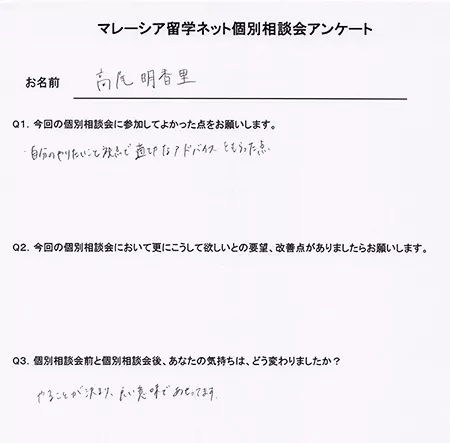 マレーシア留学ネット個別相談会アンケート
お名前 高尾 明香里
Q1. 今回の個別相談会に参加してよかった点をお願いします。
・自分のやりたいこと視点で適切なアドバイスをもらった点
Q2. 今回の個別相談会において更にこうして欲しいとの要望、改善点がありましたらお願いします。
Q3. 個別相談会前と個別相談会後、あなたの気持ちは、どう変わりましたか?
やることが決まり、良い意味であせってます.